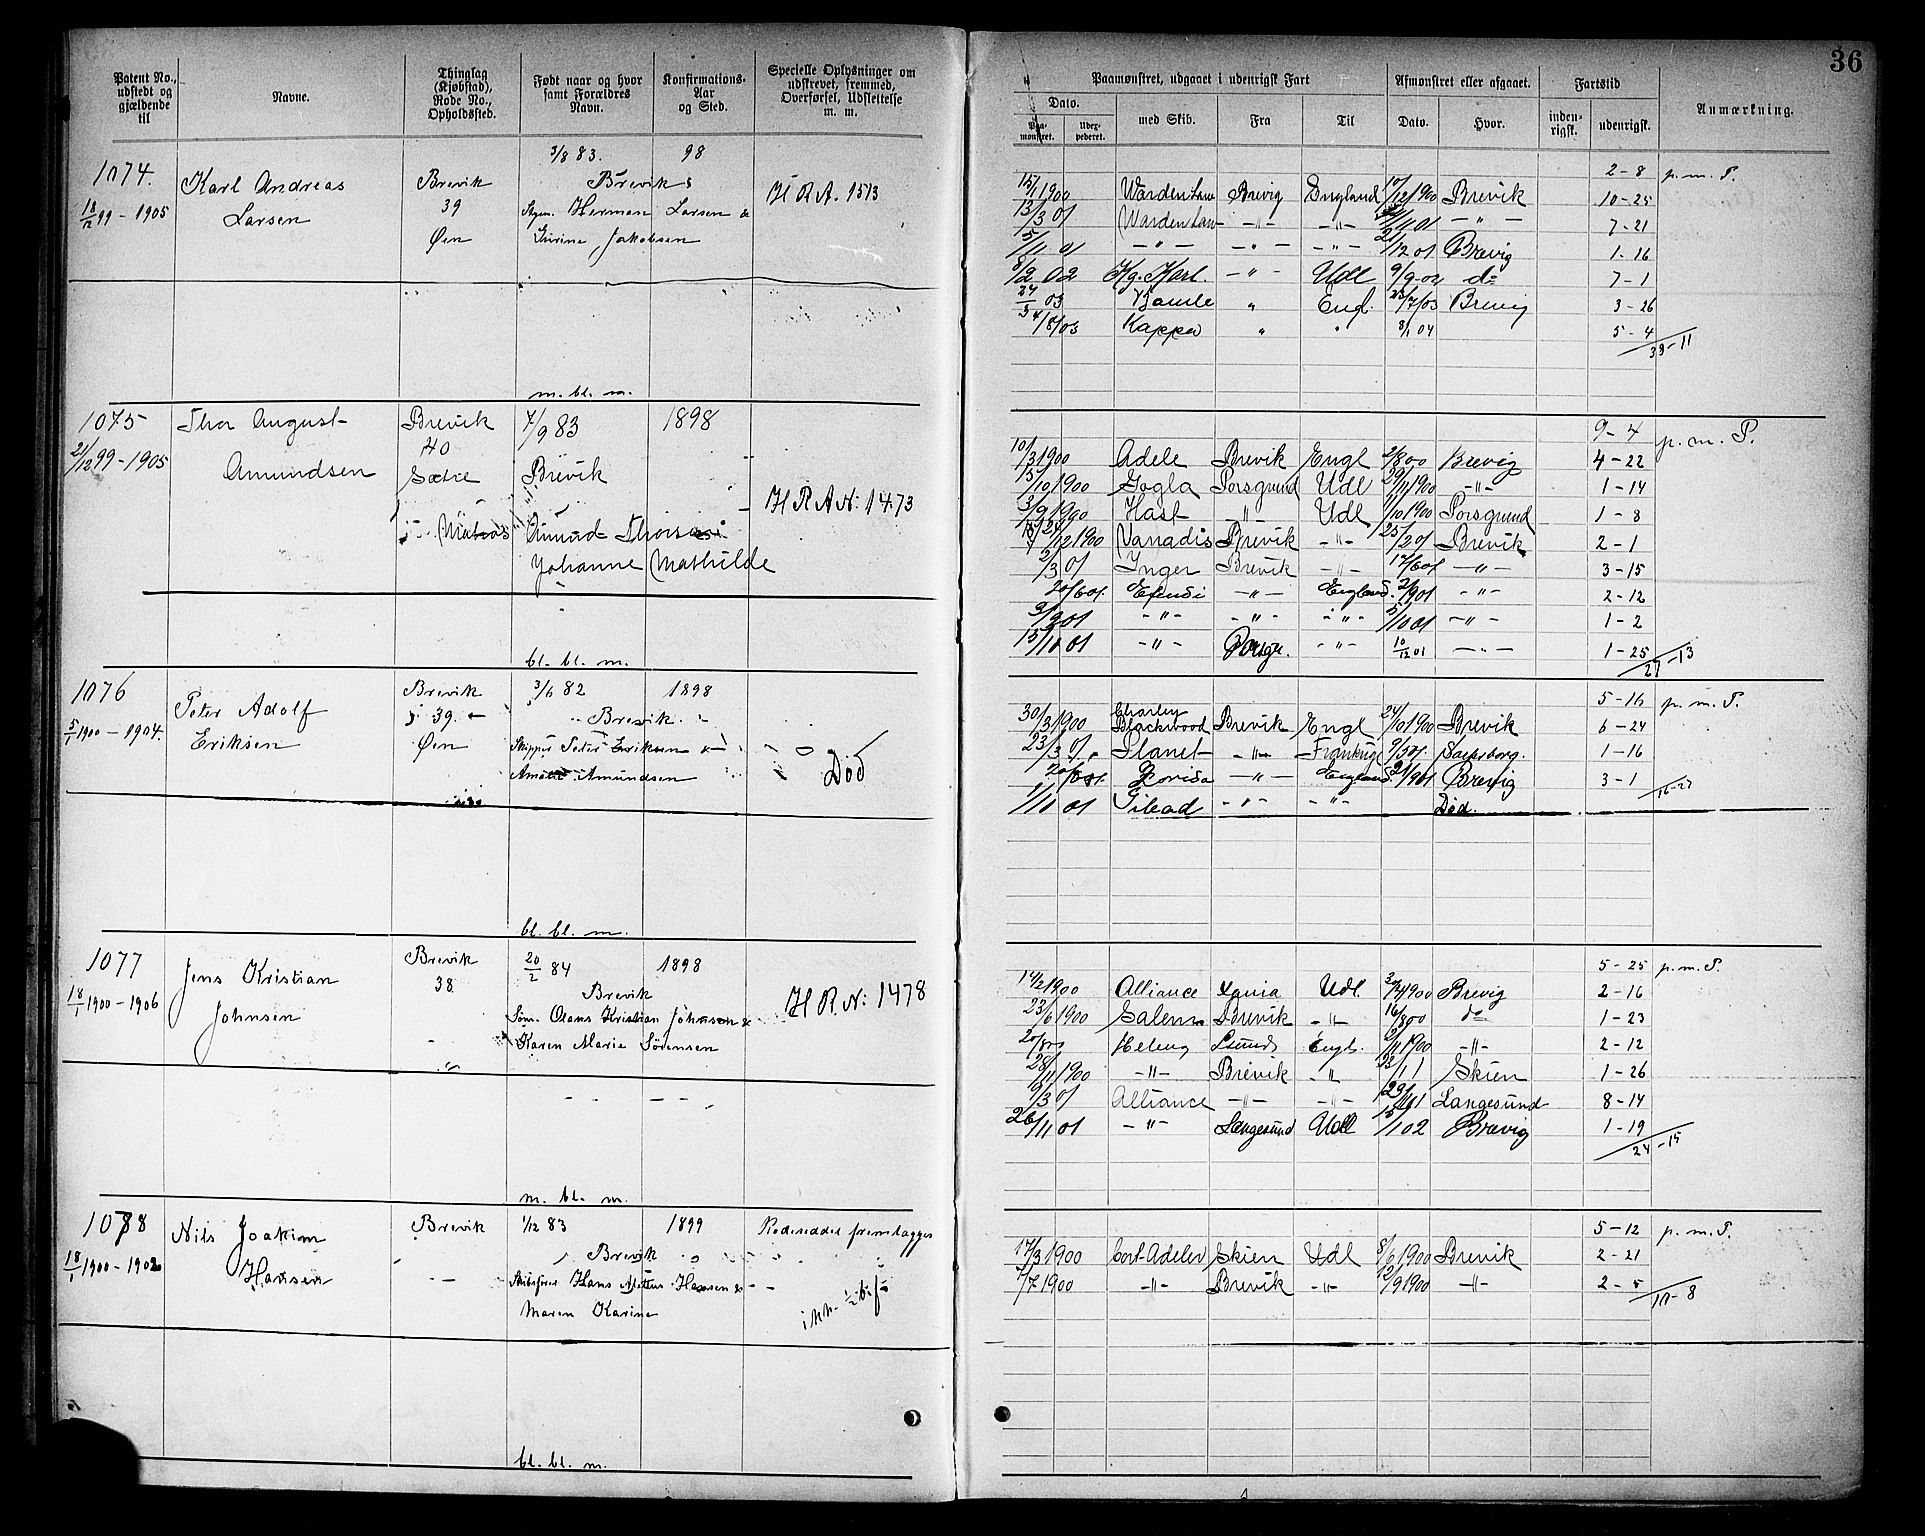 36
Patent No., udstedt og gjældende til
Navne.
Thinglag (Kjøbstad), Rode No., Opholdssted.
Født naar og hvor samt Forældres Navn.
Konfirmations-Aar og Sted.
Specielle Oplysninger om udskrevet, fremmed, Overførsel, Udslettelse m. m.
Paamønstret, udgaaet i udenrigsk Fart
Dato.
Paa-mønstret.
med Skib.
Fra
Til
Afmønstret eller afgaaet.
Dato.
Hvor.
Fartstid
inden-rigsk.
udenrigsk.
Anmærkning.
1074.
18/12 99 - 1905
Karl Andreas
Larsen
Brevik
39
Øen
3/8 83.
98
Brevik
Herman Larsen &
Jakobsen
H R A. 1513
2 - 8 p. m. P.
1900 Warden Law Brevig England 10/12 1900 Brevik 10 - 25
13/3 01 Warden Law - " - - " - 01 - " - 7 - 21
5/11 01 - " - - " - - " - 21/12 01 Brevig 1 - 16
8/2 02 Kg. Karl. - " - Udl 9/9 02 do 7 - 1
27/3 03 Bamle " Engl. 23/7/03 Brevig 3 - 26
4/8/03 Kappa " " 8/1 04 5 - 4
39 - 11
m. bl. m.
1075
21/12 99 - 1905
Thor August
Amundsen
Brevik
40
Sætre
7/9 83
1898
Brevik
Amund Thorsen
Johanne Mathilde
H R A N: 1473
9 - 4 p. m. P.
10/3 1900 Adele Brevik Engl 2/8 00 Brevig 4 - 22
15/10 1900 Gogla Porsgrund Udl 29/11 1900 - " - 1 - 14
3/9 1900 Hast - " - Udl /10 1900 Porsgrund 1 - 8
/12 1900 Vanadis Brevik - " - 25/2 01 Brevik 2 - 1
2/3 01 Inger Brevik - " - 17/6 01 - " - 3 - 15
20/6 01. - " - England. 2/9 01 - " - 2 - 12
3/9 01 - " - - " - - " - 5/10 01 - " - 1 - 2
15/10 01 - " - Porsgr. - " - 10/12 01 - " - 1 - 25
27 - 13
bl. bl. m.
1076
5/1 1900 - 1904.
Peter Adolf
Eriksen
Brevik
39.
Øen
3/6 82
1898
Brevik.
Skipper Peter Eriksen &
Amundsen
Død
5 - 16 p. m. P.
30/3 1900 Charley Blackwood Brevik Engl 24/10 1900 Brevik 6 - 24
23/3 01. Planet - " - Frankrig 9/5 01. Sarpsborg. 1 - 16
- " - England. 21/9 01 Brevig 3 - 1
16 - 27
1/10 01 Gilead - " - - " - Død.
bl. bl. m.
1077
18/1 1900 - 1906
Jens Kristian
Johnsen
Brevik
38
20/2 84
1898
Brevik
Søm. Olaus Kristian Johnsen &
Karen Marie Sørensen
H R N: 1478
5 - 25 p. m. P.
14/2 1900 Alliance Xania Udl. /4 1900 Brevig 2 - 16
23/6 1900 Salem Brevik - " - 16/8 00 do 1 - 23
20/8 00 Helena Engl. 2/11 1900 - " - 2 - 12
28/11 1900 - " - Brevik - " - Skien 1 - 26
9/3 01 Alliance - " - - " - Langesund 8 - 14
26/11 01 - " - Langesund Udl 15/1 02 Brevig 1 - 19
24 - 15
m. bl. m.
1078
18/1 1900 - 1902
Nils Joakim
Hansen
Brevik
1/12 83
1899
Brevik
Hans Hansen &
Maren Karine
Rodeseddel fremlægges
5 - 12 p. m. P.
17/3 1900 Cort Adeler Skien Udl 8/6 1900 Brevik 2 - 21
7/7 1900 - " - Brevik - " - 12/9 1900 - " - 2 - 5
10 - 8
bl. bl. m.